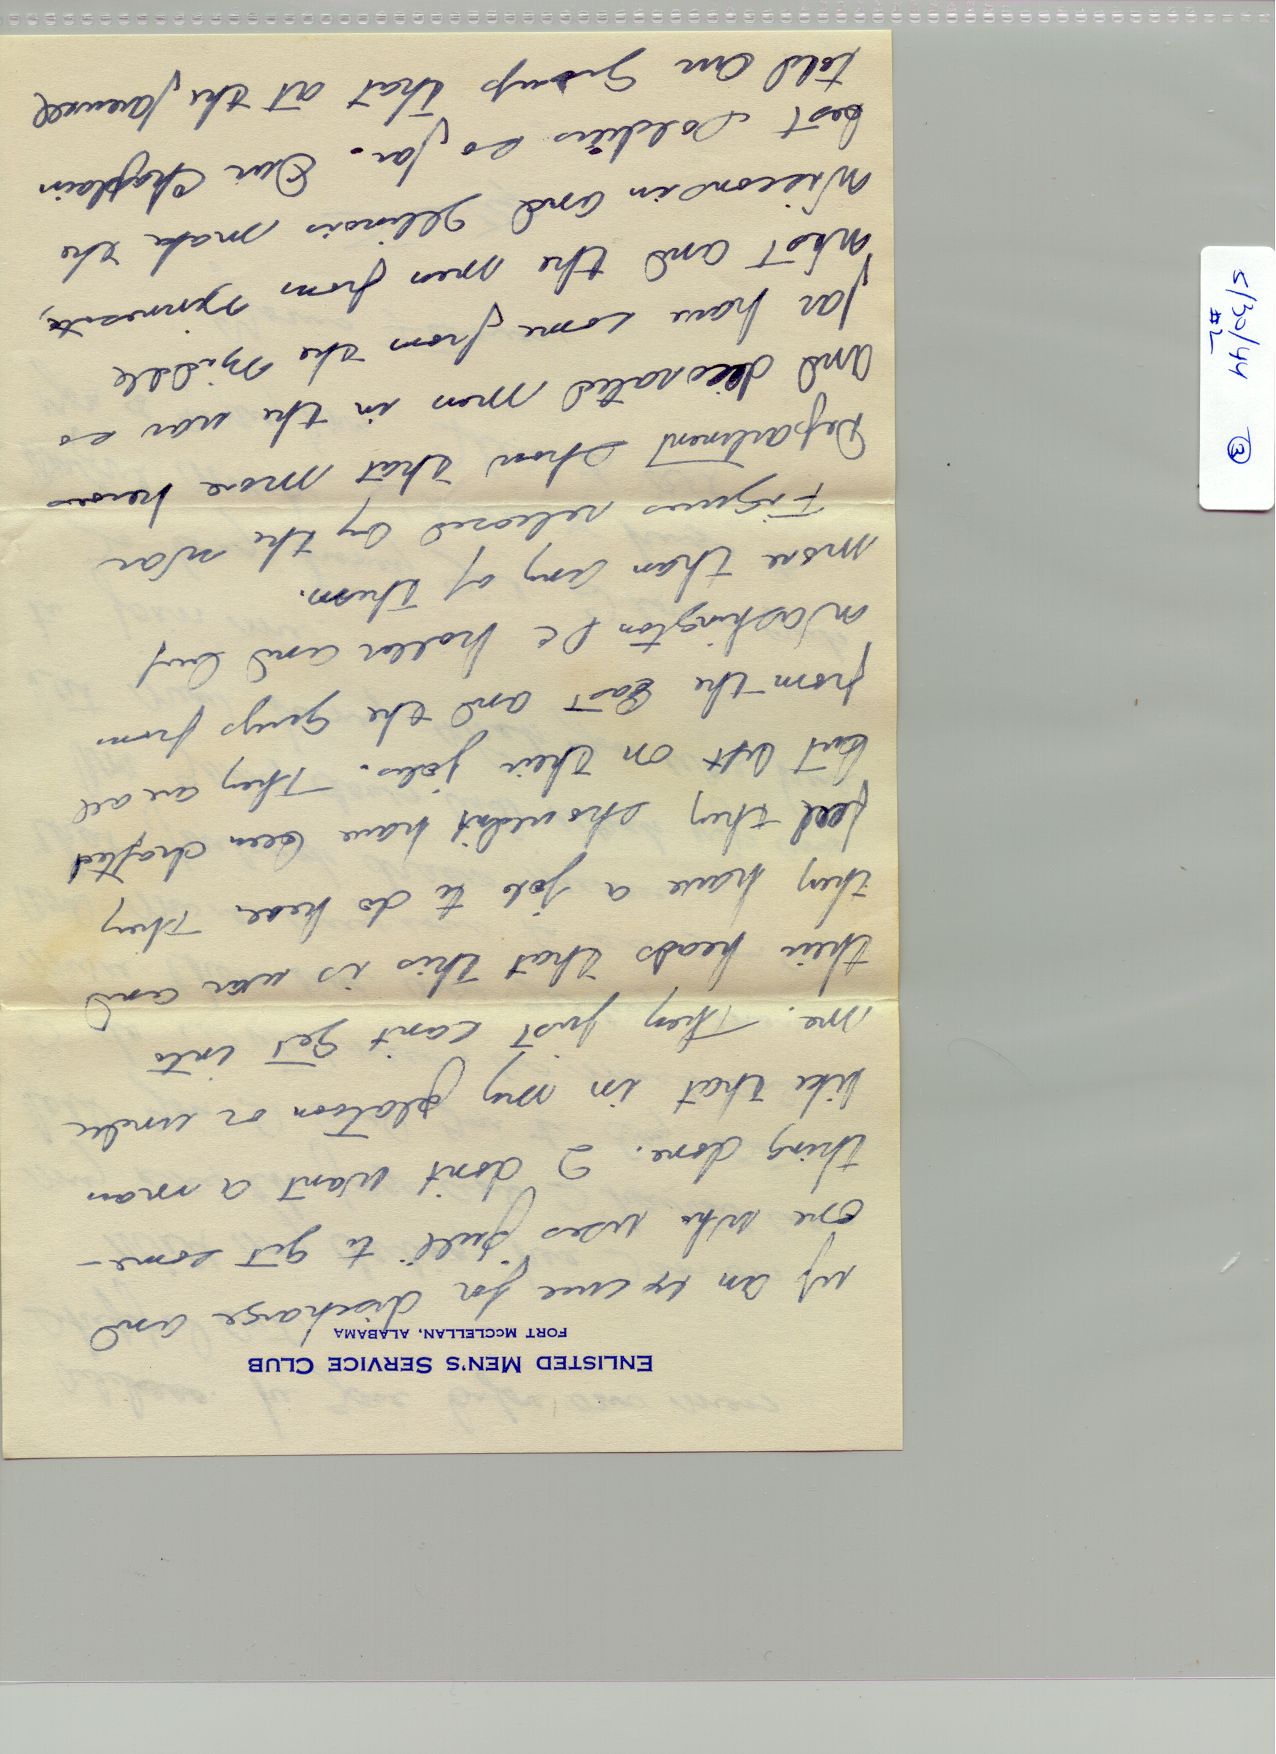 ENLISTED MEN'S SERVICE CLUB
FORT McCLELLAN, ALABAMA
up an excuse for discharge and
one who uses "pull" to get some-
thing done. I don't want a man
like that in my platoon or under
me. They just can't get into
their heads that this is war and
they have a job to do here. They
feel they shouldn't have been drafted
but left on their jobs. They are all
from the East and the guys from
Washington DC holler and
more than any of them.
Figures released by the War
Department show that more heroes
and decorated men in the war so
far have come from the Middle
West and the men from Minnesota,
Wisconsin and Illinois make the
best soldiers so far. Our Chaplain
told our group that at the farewell
5/30/44 3
#2